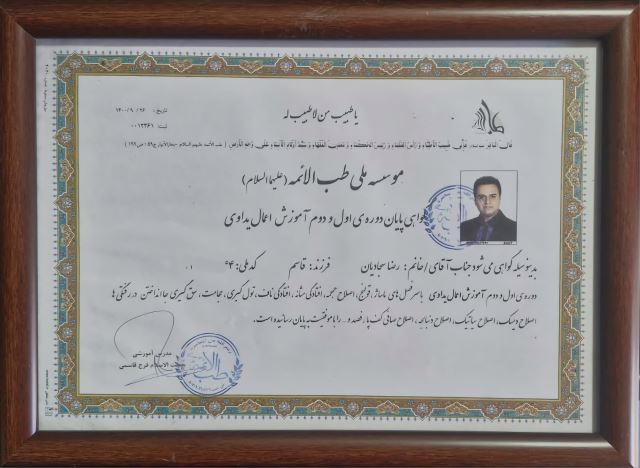 یا طبیب من لا طبیب له
تاریخ: ۱۴۰۰/۹/۲۶
ثبت: ۰۰۱۳۳۶۱
موسسه ملی طب الائمه (علیهما السلام)
گواهی پایان دوره ی اول و دوم آموزش اعمال یداوی
بدینوسیله گواهی می شود جناب آقای / خانم: رضا سجادیان فرزند: قاسم کدملی: ۹۴
دوره ی اول و دوم آموزش اعمال یداوی با سرفصل های ماساژ، قولنج، اصلاح جمجمه، افتادگی مثانه، افتادگی ناف، نول گیری، حجامت، سق گیری جا انداختن در رفتگی ها
اصلاح دیسک، اصلاح سیاتیک، اصلاح دنبالچه، اصلاح صافی کف پا، فصد و... را با موفقیت به پایان رسانیده است.
مدرس آموزشی
حجت الاسلام فرج قاسمی